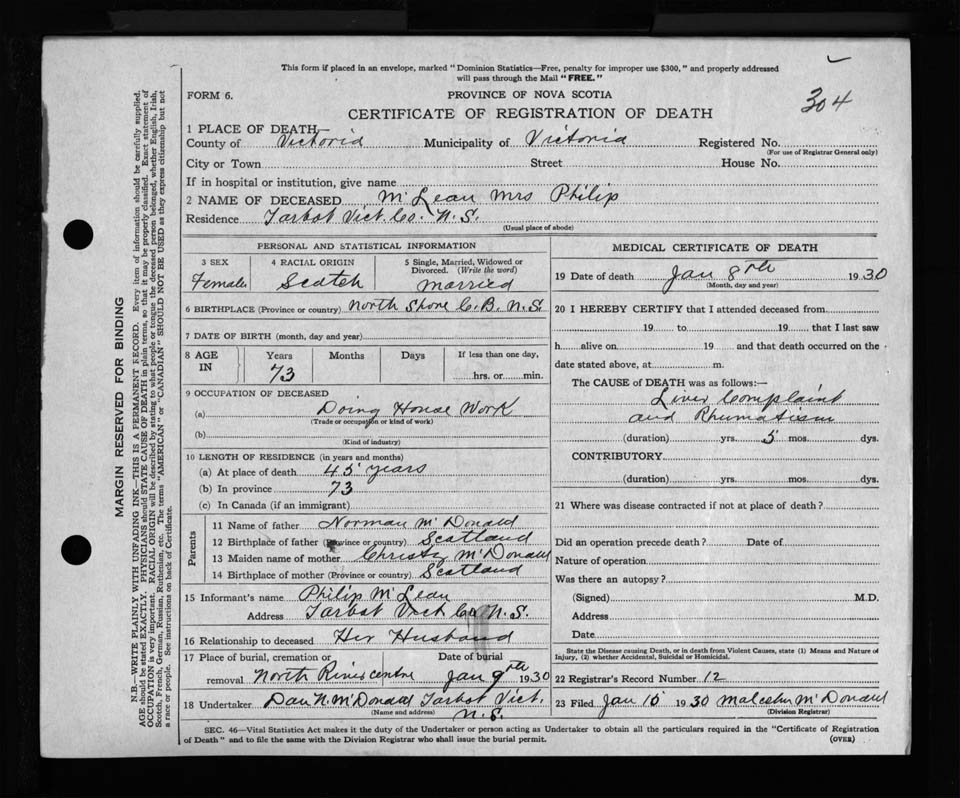 This form if placed in an envelope, marked "Dominion Statistics—Free, penalty for improper use $300," and properly addressed
will pass through the Mail "FREE."
304
FORM 6.
PROVINCE OF NOVA SCOTIA
CERTIFICATE OF REGISTRATION OF DEATH
1 PLACE OF DEATH
County of Victoria Municipality of Victoria Registered No.
(For use of Registrar General only)
City or Town Street House No.
If in hospital or institution, give name
2 NAME OF DECEASED McLean Mrs Philip
Residence Tarbot Vict. Co. N.S.
(Usual place of abode)
PERSONAL AND STATISTICAL INFORMATION
3 SEX 4 RACIAL ORIGIN 5 Single, Married, Widowed or
Divorced. (Write the word)
Female Scotch married
6 BIRTHPLACE (Province or country) North Shore C.B. N.S.
7 DATE OF BIRTH (month, day and year)
8 AGE Years Months Days If less than one day,
IN 73 hrs. or min.
9 OCCUPATION OF DECEASED
(a) Doing House Work
(Trade or occupation or kind of work)
(b)
(Kind of industry)
10 LENGTH OF RESIDENCE (in years and months)
(a) At place of death 45 years
(b) In province 73
(c) In Canada (if an immigrant)
Parents
11 Name of father Norman McDonald
12 Birthplace of father (Province or country) Scotland
13 Maiden name of mother Christy McDonald
14 Birthplace of mother (Province or country) Scotland
15 Informant's name Philip McLean
Address Tarbot Vict Co N.S.
16 Relationship to deceased Her Husband
17 Place of burial, cremation or Date of burial
removal North River centre Jan 9th 1930
18 Undertaker Dan N. McDonald Tarbot Vict.
(Name and address) N.S.
MEDICAL CERTIFICATE OF DEATH
19 Date of death Jan 8th 1930
(Month, day and year)
20 I HEREBY CERTIFY that I attended deceased from
19 to 19 that I last saw
h alive on 19 and that death occurred on the
date stated above, at m.
The CAUSE of DEATH was as follows:—
Liver Complaint
and Rhumatism
(duration) yrs. 5 mos. dys.
CONTRIBUTORY
(duration) yrs. mos. dys.
21 Where was disease contracted if not at place of death?
Did an operation precede death? Date of
Nature of operation
Was there an autopsy?
(Signed) M.D.
Address
Date
State the Disease causing Death, or in death from Violent Causes, state (1) Means and Nature of
Injury, (2) whether Accidental, Suicidal or Homicidal.
22 Registrar's Record Number 12
23 Filed Jan 15 1930 Malcolm McDonald
(Division Registrar)
SEC. 46—Vital Statistics Act makes it the duty of the Undertaker or person acting as Undertaker to obtain all the particulars required in the "Certificate of Registration
of Death" and to file the same with the Division Registrar who shall issue the burial permit. (OVER)
MARGIN RESERVED FOR BINDING
N.B.—WRITE PLAINLY WITH UNFADING INK—THIS IS A PERMANENT RECORD. Every item of information should be carefully supplied.
AGE should be stated EXACTLY. PHYSICIANS should STATE CAUSE OF DEATH in plain terms, so that it may be properly classified. Exact statement of
OCCUPATION is very important. RACIAL ORIGIN will be described by stating to what people or tongue the deceased person belonged, whether English, Irish,
Scotch, French, German, Russian, Ruthenian, etc. The terms "AMERICAN" or "CANADIAN" SHOULD NOT BE USED as they express citizenship but not
a race or people. See instructions on back of Certificate.